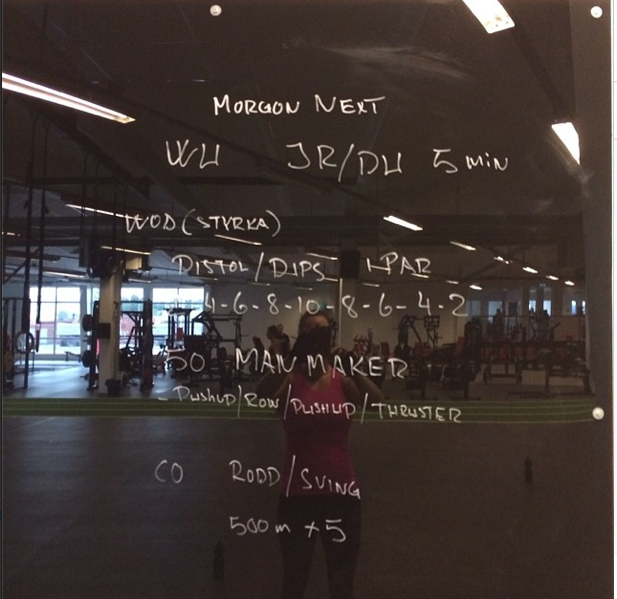 MORGON NEXT
WU JR/DU 5 MIN
WOD (STYRKA)
PISTOL/DIPS I PAR
4-6-8-10-8-6-4-2
50 MAN MAKER
- PUSHUP/ROW/PUSHUP/THRUSTER
CO RODD/SVING
500 m x 5